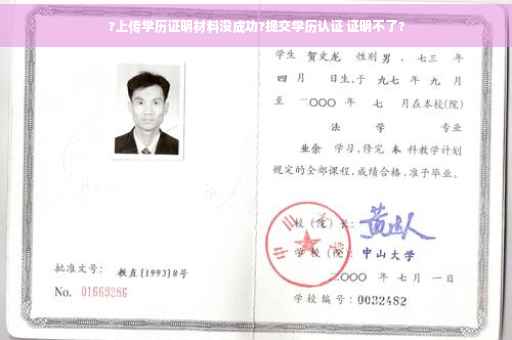 ?上传学历证明材料没成功?提交学历认证 证明不了?
学生 贺文龙 性别 男 、七三 年
四 月 日生,于 九七 年 九 月
至 二〇〇〇 年 七 月在本校(院)
法 学 专业
业余 学习,修完 本 科教学计划
规定的全部课程,成绩合格,准予毕业。
校(院)长:
学校(院): 中山大学
二〇〇〇 年 七 月 一 日
学校编号: 0032482
批准文号: 教直[1993]8号
No. 01669286